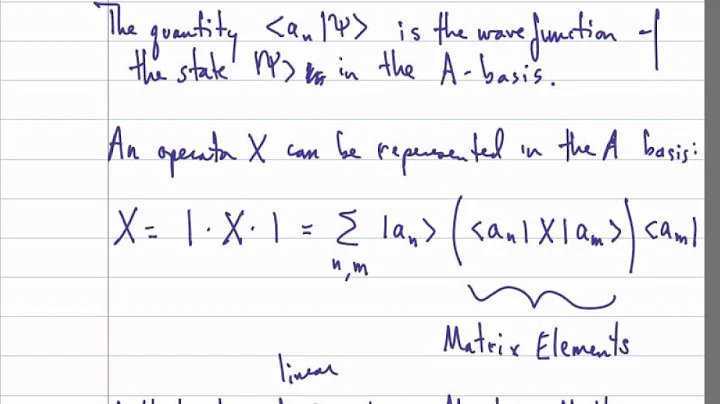 The quantity <aₙ|Ψ> is the wavefunction of
the state |Ψ> in the A-basis.
An operator X can be represented in the A basis:
X = 1 · X · 1 = ∑ |aₙ> (<aₙ|X|aₘ>) <aₘ|
n,m
Matrix Elements
linear